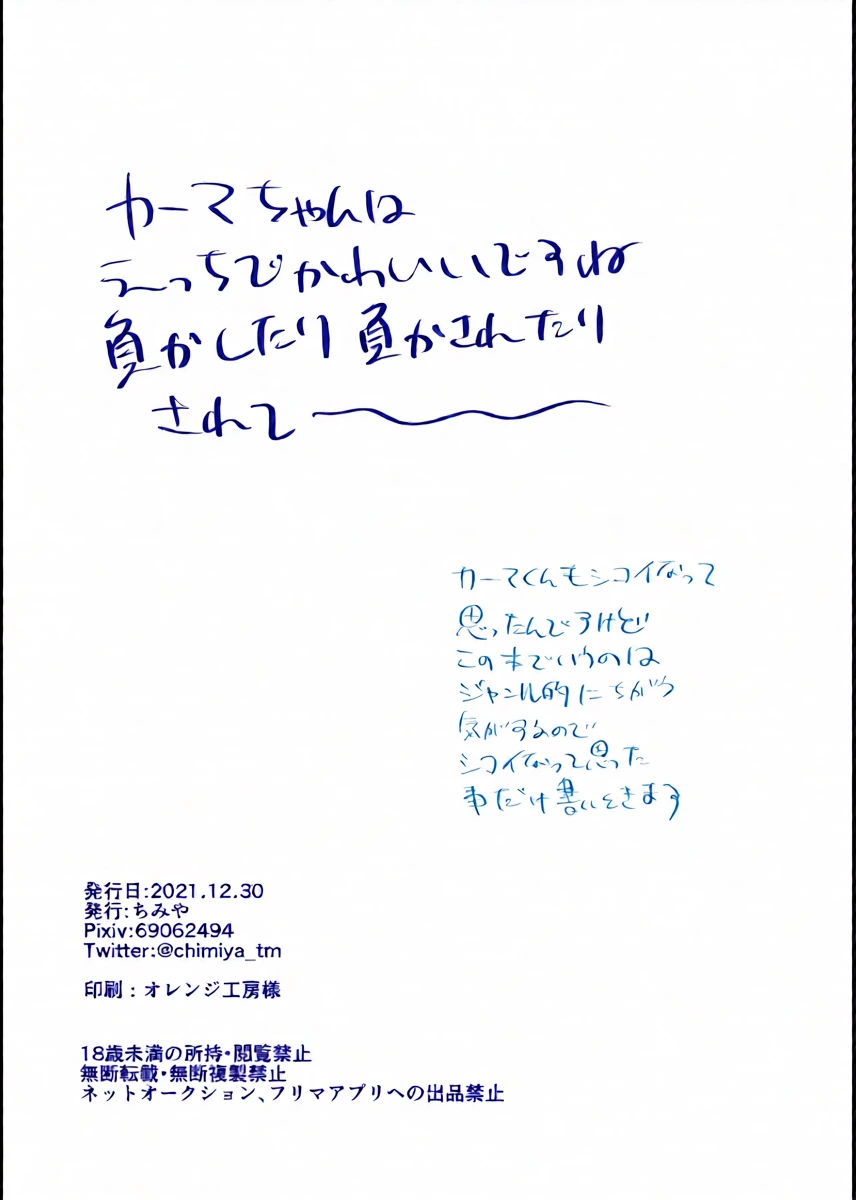 カーマちゃんは
えっちでかわいいですね
負かしたり負かされたり
されて〜
カーマくんもシコイなって
思ったんですけど
この本でいうのは
ジャンル的にちがう
気がするので
シコイなって思った
事だけ書いときます
発行日:2021.12.30
発行:ちみや
Pixiv:69062494
Twitter:@chimiya_tm
印刷：オレンジ工房様
18歳未満の所持・閲覧禁止
無断転載・無断複製禁止
ネットオークション、フリマアプリへの出品禁止